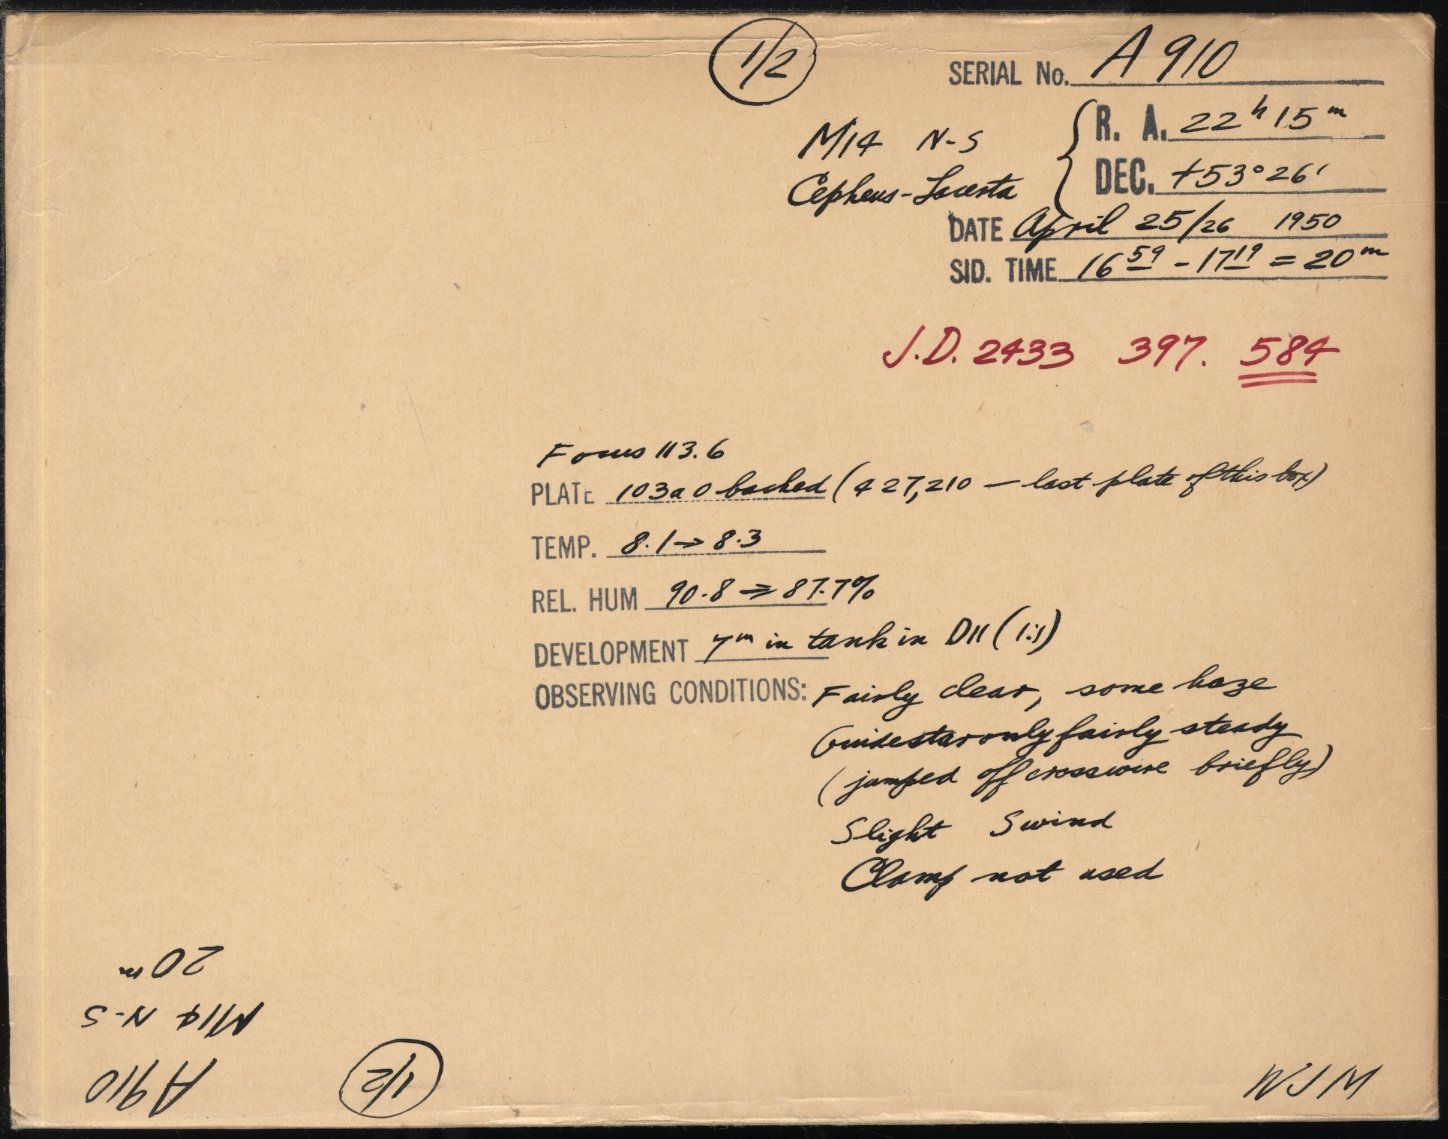 1/2
SERIAL No. A 910
M14 N-S
Cepheus-Lacerta
R. A. 22ʰ 15ᵐ
DEC. +53° 26'
DATE April 25/26 1950
SID. TIME 16 59 - 17 19 = 20ᵐ
J.D. 2433 397. 584
Focus 113.6
PLATE 103a O backed (427,210 — last plate of this box)
TEMP. 8.1 → 8.3
REL. HUM 90.8 ⇒ 87.7%
DEVELOPMENT 7ᵐ in tank in D11 (1:1)
OBSERVING CONDITIONS: Fairly clear, some haze
Guidestar only fairly steady
(jumped off crosswire briefly)
Slight S wind
Clamp not used
A910
M14 N-S
20ᵐ
1/2
WJM